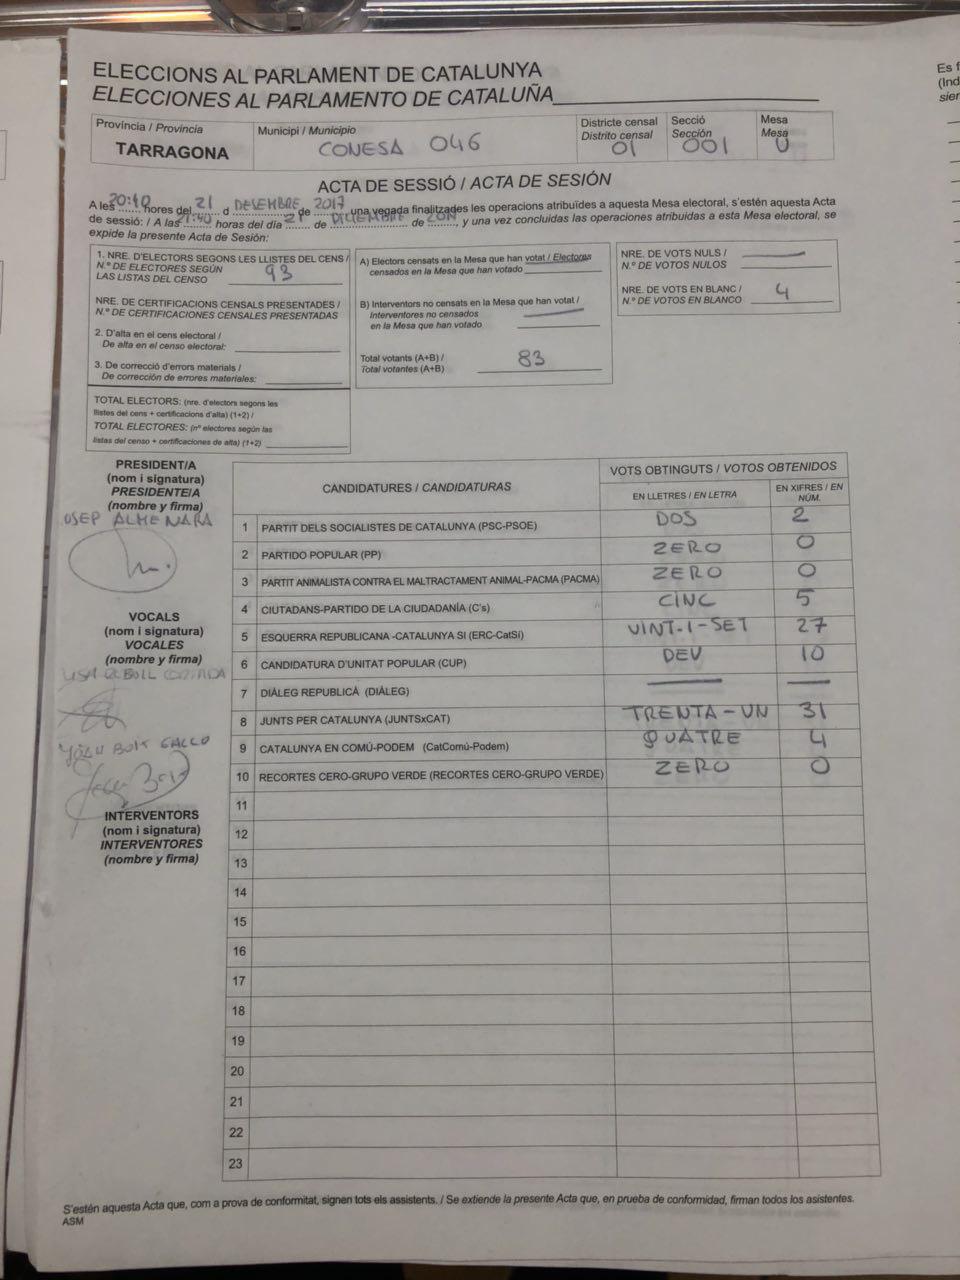 ELECCIONS AL PARLAMENT DE CATALUNYA
ELECCIONES AL PARLAMENTO DE CATALUÑA
Província / Provincia
TARRAGONA
Municipi / Municipio
CONESA 046
Districte censal
Distrito censal
01
Secció
Sección
001
Mesa
Mesa
U
ACTA DE SESSIÓ / ACTA DE SESIÓN
A les 20:40 hores del 21 d DESEMBRE de 2017 una vegada finalitzades les operacions atribuïdes a aquesta Mesa electoral, s'estén aquesta Acta
de sessió: / A las 21:40 horas del día 21 de DICIEMBRE de 2017, y una vez concluidas las operaciones atribuidas a esta Mesa electoral, se
expide la presente Acta de Sesión:
1. NRE. D'ELECTORS SEGONS LES LLISTES DEL CENS /
N.º DE ELECTORES SEGÚN
LAS LISTAS DEL CENSO 93
NRE. DE CERTIFICACIONS CENSALS PRESENTADES /
N.º DE CERTIFICACIONES CENSALES PRESENTADAS
2. D'alta en el cens electoral /
De alta en el censo electoral:
3. De correcció d'errors materials /
De corrección de errores materiales:
TOTAL ELECTORS: (nre. d'electors segons les
llistes del cens + certificacions d'alta) (1+2) /
TOTAL ELECTORES: (nº electores según las
listas del censo + certificaciones de alta) (1+2)
A) Electors censats en la Mesa que han votat / Electores
censados en la Mesa que han votado
B) Interventors no censats en la Mesa que han votat /
Interventores no censados
en la Mesa que han votado
Total votants (A+B) /
Total votantes (A+B) 83
NRE. DE VOTS NULS /
N.º DE VOTOS NULOS
NRE. DE VOTS EN BLANC /
N.º DE VOTOS EN BLANCO 4
PRESIDENT/A
(nom i signatura)
PRESIDENTE/A
(nombre y firma)
OSEP ALMENARA
VOCALS
(nom i signatura)
VOCALES
(nombre y firma)
INTERVENTORS
(nom i signatura)
INTERVENTORES
(nombre y firma)
CANDIDATURES / CANDIDATURAS
VOTS OBTINGUTS / VOTOS OBTENIDOS
EN LLETRES / EN LETRA
EN XIFRES / EN NÚM.
1 PARTIT DELS SOCIALISTES DE CATALUNYA (PSC-PSOE) DOS 2
2 PARTIDO POPULAR (PP) ZERO 0
3 PARTIT ANIMALISTA CONTRA EL MALTRACTAMENT ANIMAL-PACMA (PACMA) ZERO 0
4 CIUTADANS-PARTIDO DE LA CIUDADANÍA (C's) CINC 5
5 ESQUERRA REPUBLICANA -CATALUNYA SI (ERC-CatSí) VINT-I-SET 27
6 CANDIDATURA D'UNITAT POPULAR (CUP) DEU 10
7 DIÀLEG REPUBLICÀ (DIÀLEG)
8 JUNTS PER CATALUNYA (JUNTSxCAT) TRENTA-UN 31
9 CATALUNYA EN COMÚ-PODEM (CatComú-Podem) QUATRE 4
10 RECORTES CERO-GRUPO VERDE (RECORTES CERO-GRUPO VERDE) ZERO 0
11
12
13
14
15
16
17
18
19
20
21
22
23
S'estén aquesta Acta que, com a prova de conformitat, signen tots els assistents. / Se extiende la presente Acta que, en prueba de conformidad, firman todos los asistentes.
ASM
Es f
(Ind
sier